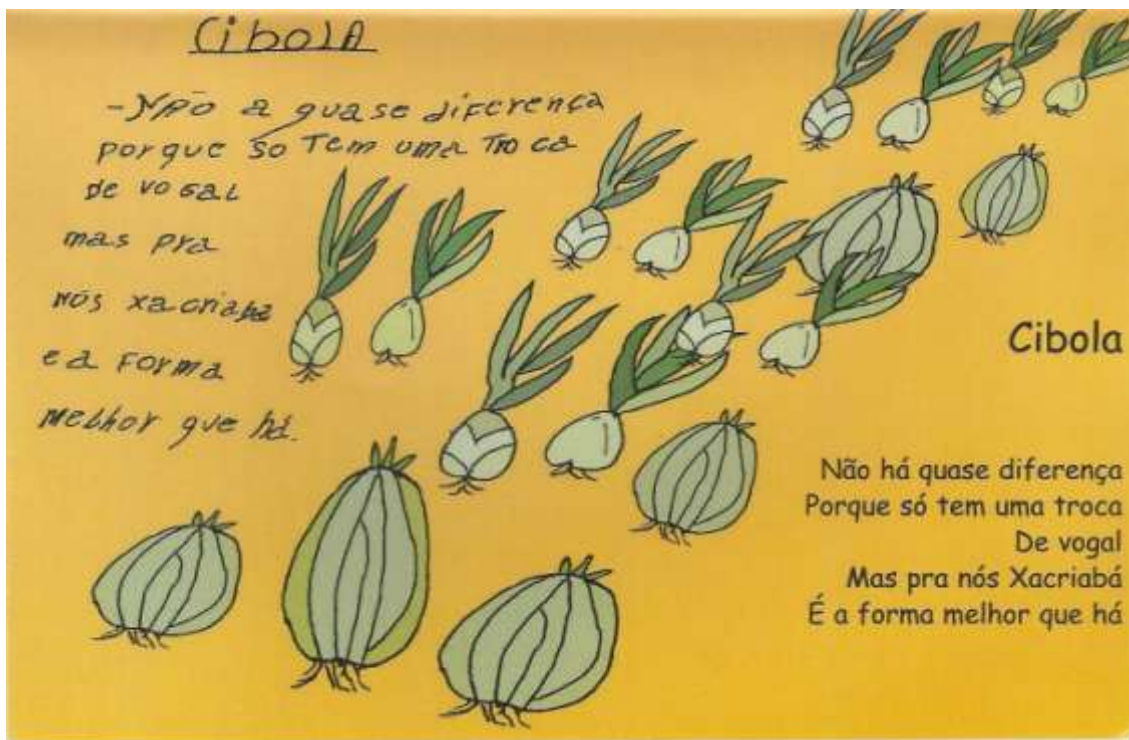 CibolA
-NÃO a quase diferença
porque só Tem uma Troca
De vogal
mas pra
nós xacriaba
e a Forma
melhor que há.
Cibola
Não há quase diferença
Porque só tem uma troca
De vogal
Mas pra nós Xacriabá
É a forma melhor que há